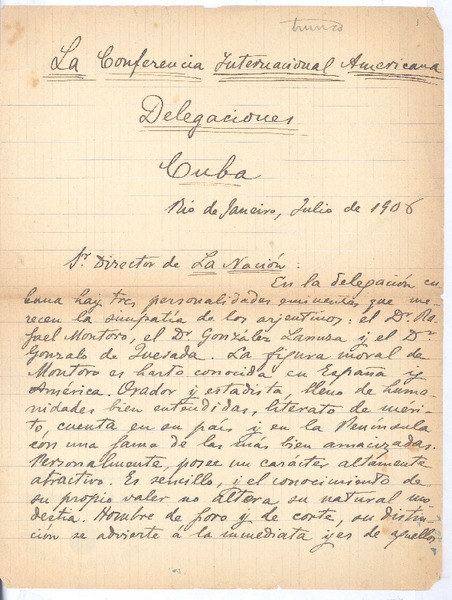 trunco
1
La Conferencia Internacional Americana
Delegaciones
Cuba
Rio de Janeiro, Julio de 1906
Sr. Director de La Nación:
En la delegación cu-
bana hay tres personalidades eminentes que me-
recen la simpatía de los arjentinos: el Dr. Ra-
fael Montoro, el Dr González Lanuza y el Dr
Gonzalo de Quesada. La figura moral de
Montoro es harto conocida en España y
América. Orador y estadista, lleno de huma-
nidades bien entendidas, literato de meri-
to, cuenta en su pais y en la Península
con una fama de las más bien amacizadas.
Personalmente, posee un carácter altamente
atractivo. Es sencillo, i el conocimiento de
su propio valer no altera su natural mo-
destia. Hombre de foro y de corte, su distin-
ción se advierte á la inmediata y es de aquellos